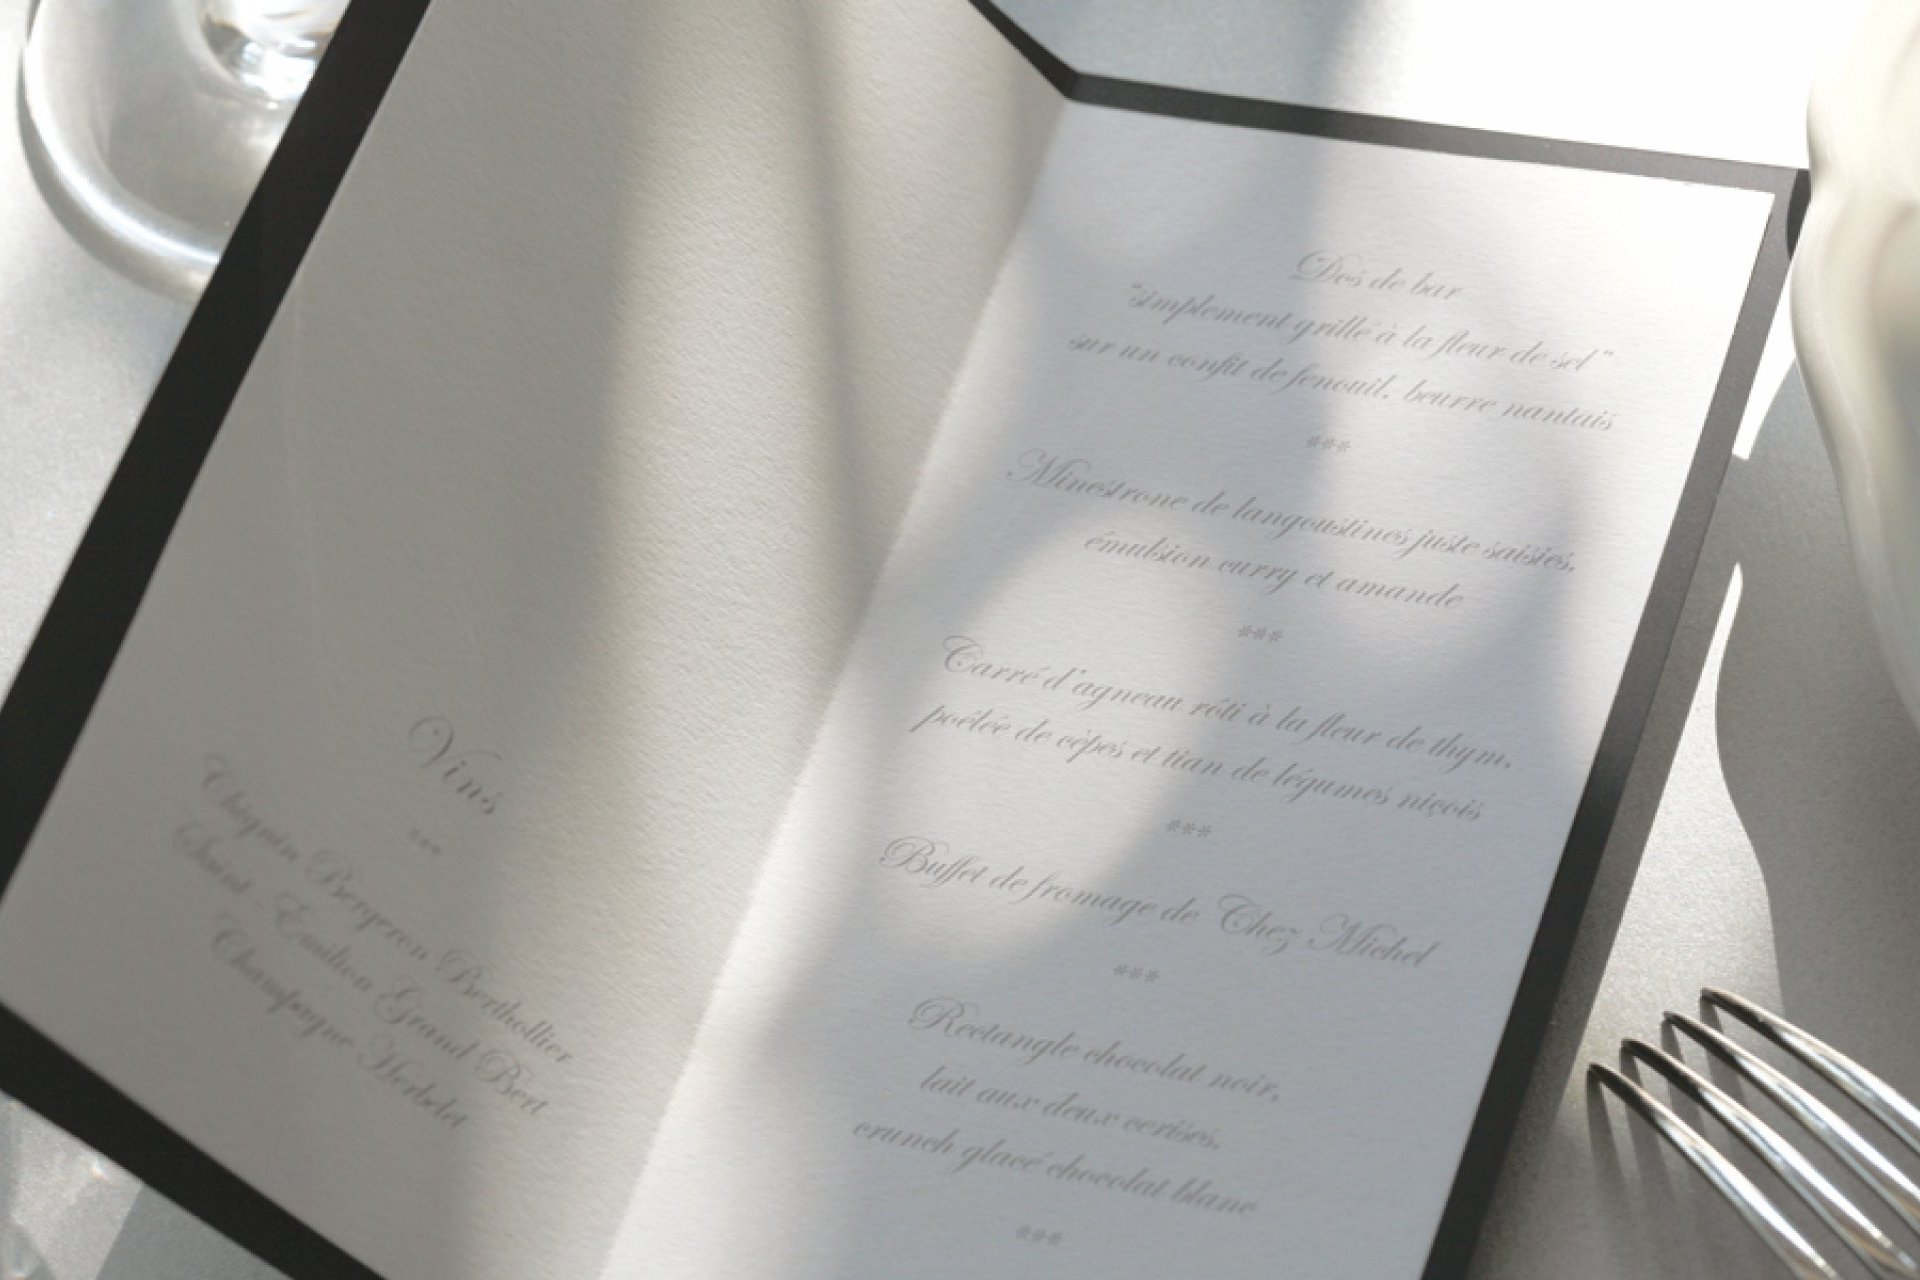 Vins
***
Chignin Bergeron Berthollier
Saint - Emilion Grand Bert
Champagne Herbelet
Dos de bar
"simplement grillé à la fleur de sel"
sur un confit de fenouil, beurre nantais
***
Minestrone de langoustines juste saisies,
émulsion curry et amande
***
Carré d'agneau rôti à la fleur de thym,
poêlée de cèpes et tian de légumes niçois
***
Buffet de fromage de Chez Michel
***
Rectangle chocolat noir,
lait aux deux cerises,
crunch glacé chocolat blanc
***